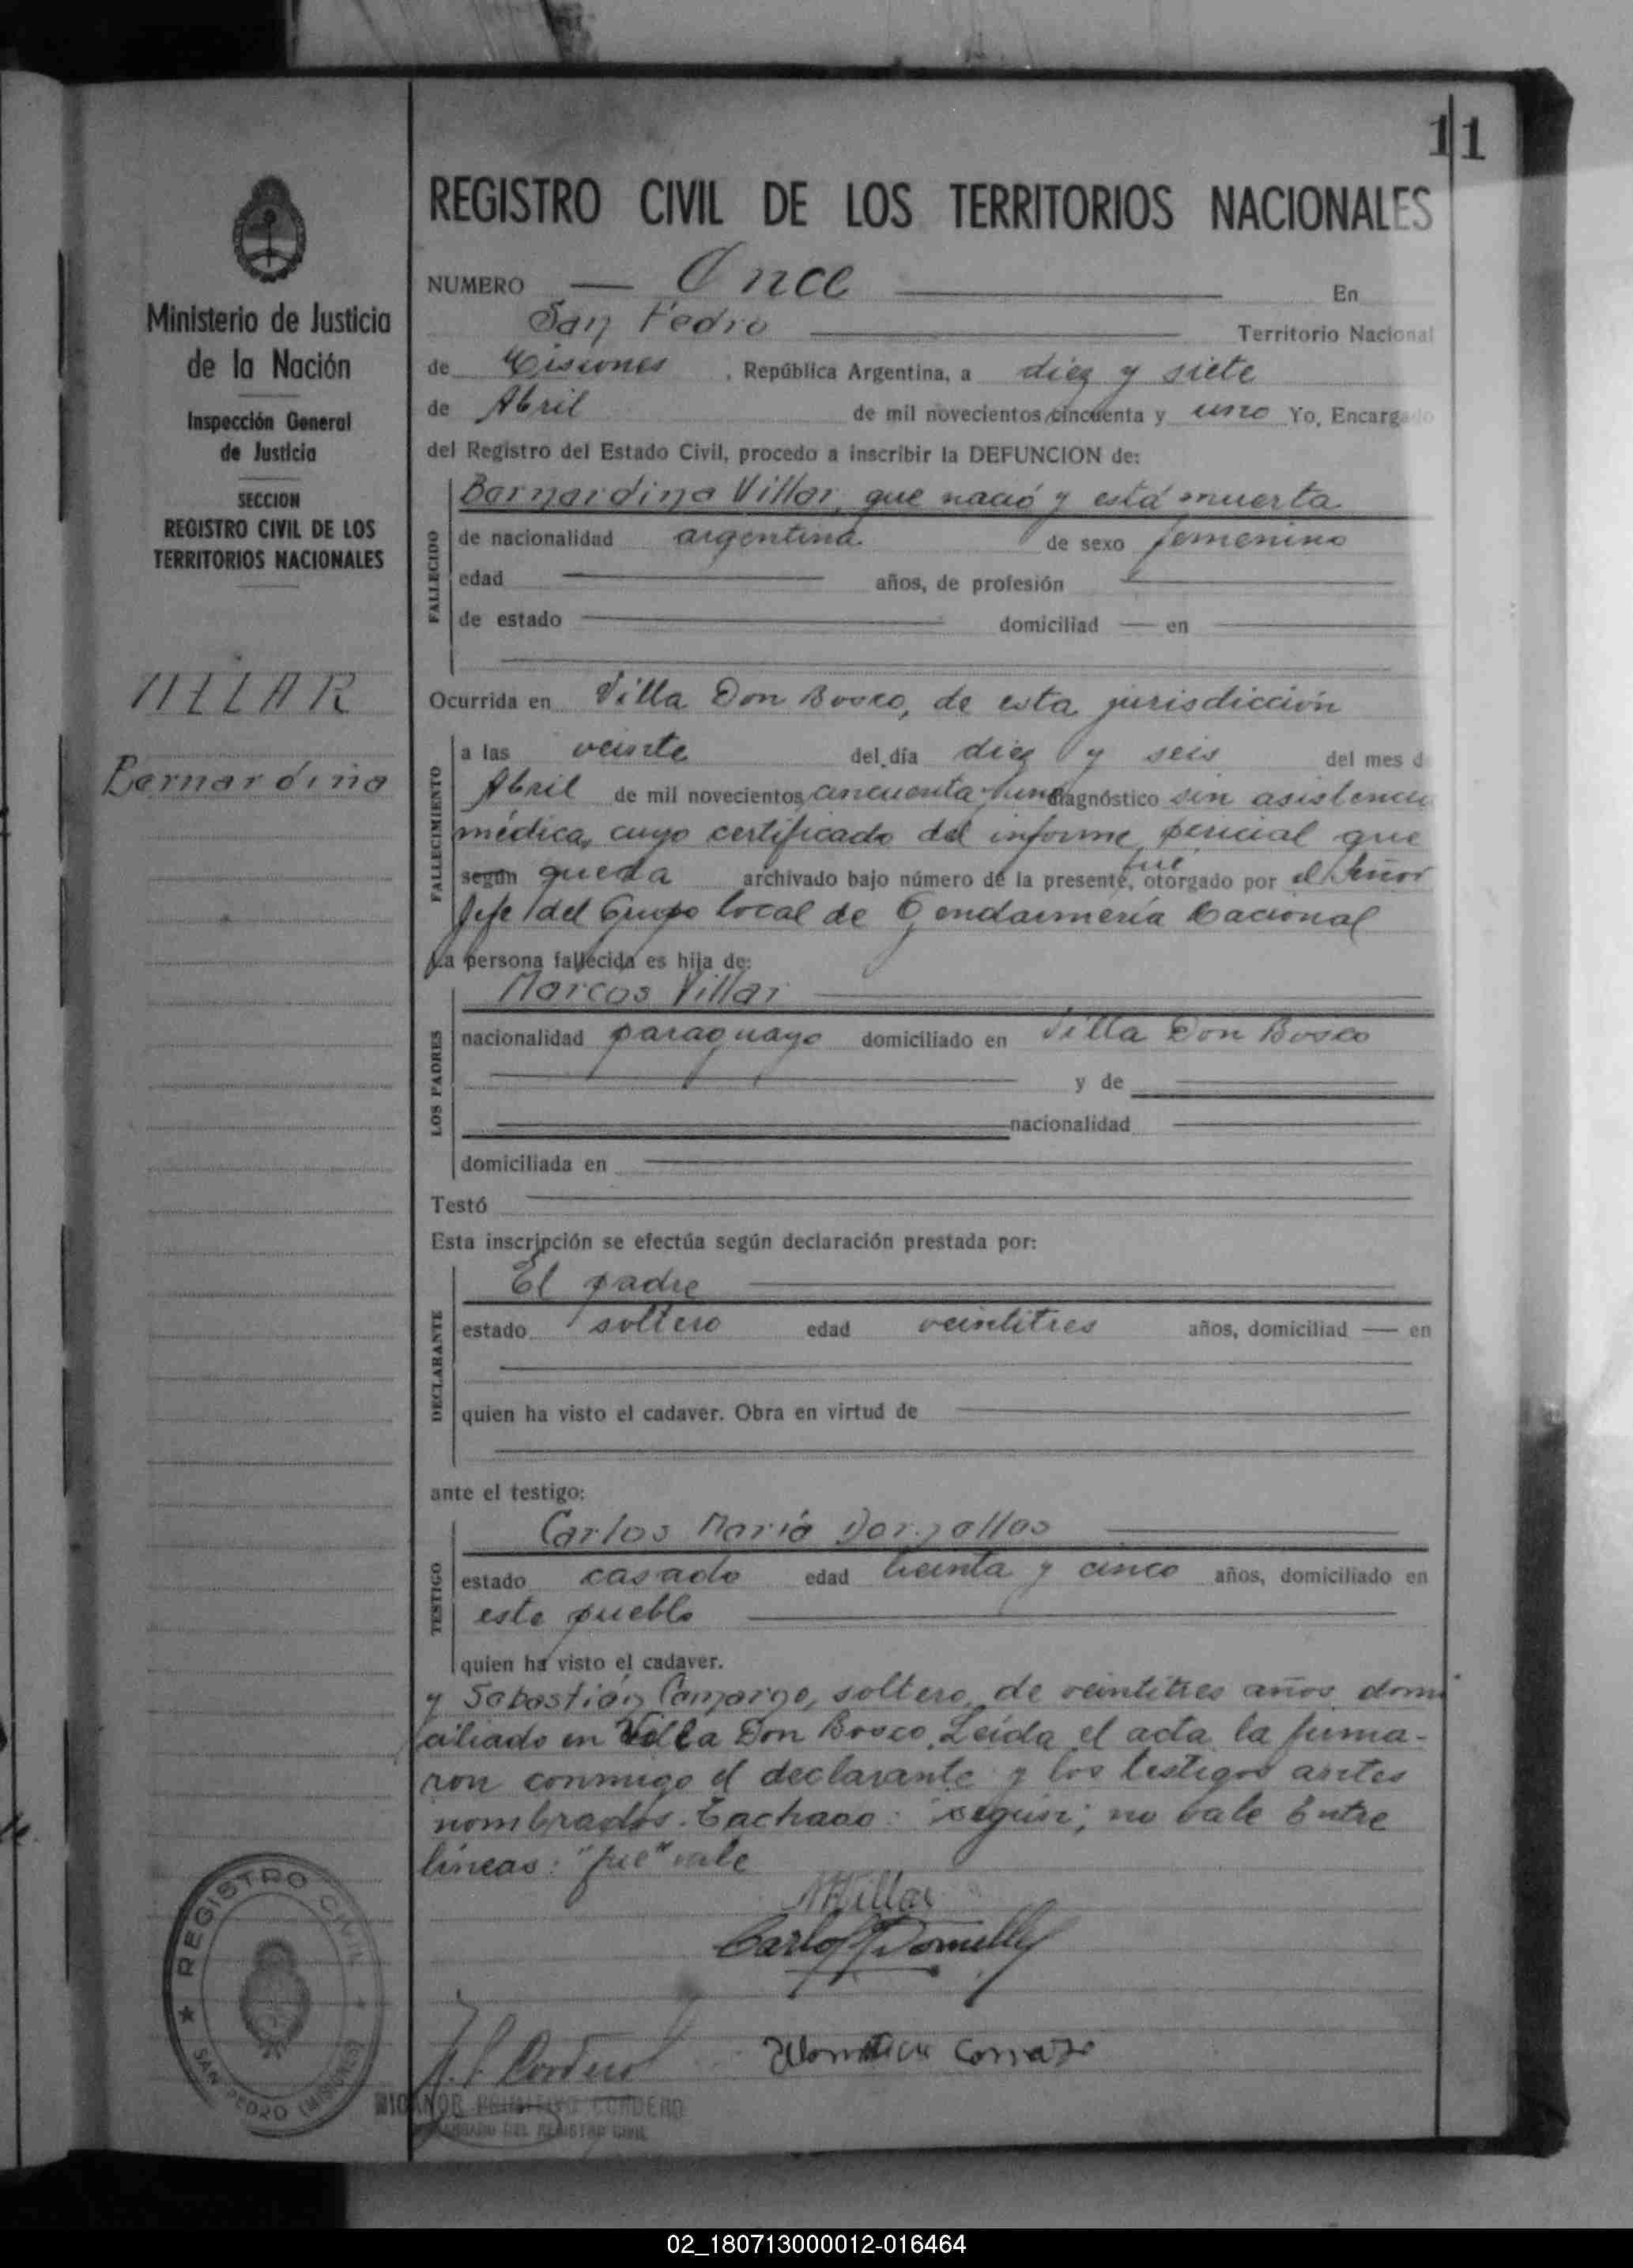 11
REGISTRO CIVIL DE LOS TERRITORIOS NACIONALES
Ministerio de Justicia
de la Nación
Inspección General
de Justicia
SECCION
REGISTRO CIVIL DE LOS
TERRITORIOS NACIONALES
VILLAR
Bernardina
NUMERO — Once — En
San Pedro — Territorio Nacional
de Misiones, República Argentina, a diez y siete
de Abril de mil novecientos cincuenta y uno Yo, Encargado
del Registro del Estado Civil, procedo a inscribir la DEFUNCION de:
FALLECIDO
Bernardina Villar, que nació y está muerta
de nacionalidad argentina. de sexo femenino
edad — años, de profesión —
de estado — domiciliad — en —
Ocurrida en Villa Don Bosco, de esta jurisdicción
FALLECIMIENTO
a las veinte del día diez y seis del mes d
Abril de mil novecientos cincuenta y uno diagnóstico sin asistencia
médica, cuyo certificado del informe pericial que
fué
según queda archivado bajo número de la presente, otorgado por el Señor
Jefe del Grupo local de Gendarmería Nacional
La persona fallecida es hija de:
LOS PADRES
Marcos Villar —
nacionalidad paraguayo domiciliado en Villa Don Bosco
— y de —
— nacionalidad —
domiciliada en —
Testó —
Esta inscripción se efectúa según declaración prestada por:
DECLARANTE
El padre —
estado soltero edad veintitres años, domiciliad — en
quien ha visto el cadaver. Obra en virtud de —
ante el testigo:
TESTIGO
Carlos María —
estado casado edad treinta y cinco años, domiciliado en
este pueblo —
quien ha visto el cadaver.
y Sebastián Camargo, soltero, de veintitres años domi
ciliado en Villa Don Bosco. Leída el acta la firma-
ron conmigo el declarante y los testigos antes
nombrados. Tachado: "según"; no vale Entre
líneas: "fué" vale
MVillar
REGISTRO CIVIL
SAN PEDRO (MISIONES)
NICANOR PRIMITIVO CORDERO
ENCARGADO DEL REGISTRO CIVIL
02_180713000012-016464